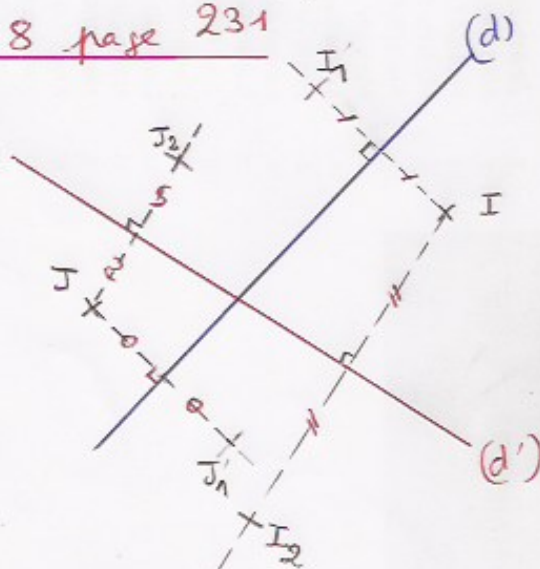 8 page 231
(d)
I1
J2
I
J
(d')
J1
I2